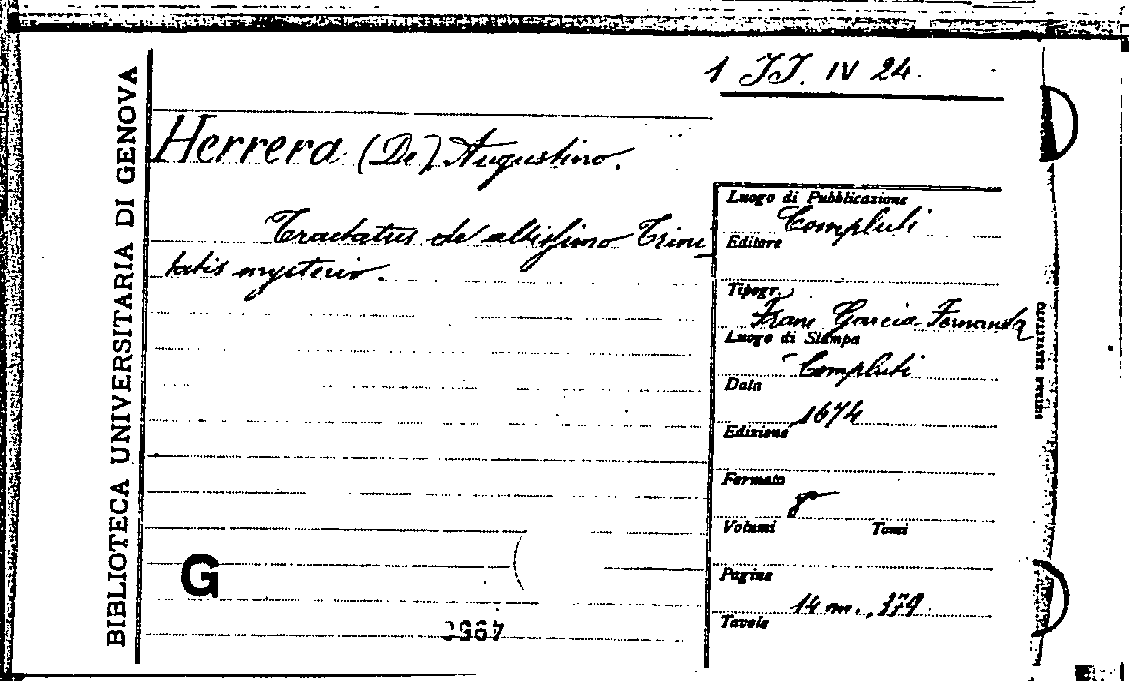 1 JJ. IV 24.
BIBLIOTECA UNIVERSITARIA DI GENOVA
Herrera (De) Augustino.
Tractatus de altissimo Trini_
tatis mysterio.
Luogo di Pubblicazione
Compluti
Editore
Tipogr.
Franc Garcia Fernandz
Luogo di Stampa
Compluti
Data
1674
Edizione
Formato
8°
Volumi Tomi
Pagine
14 nn., 379
Tavole
G